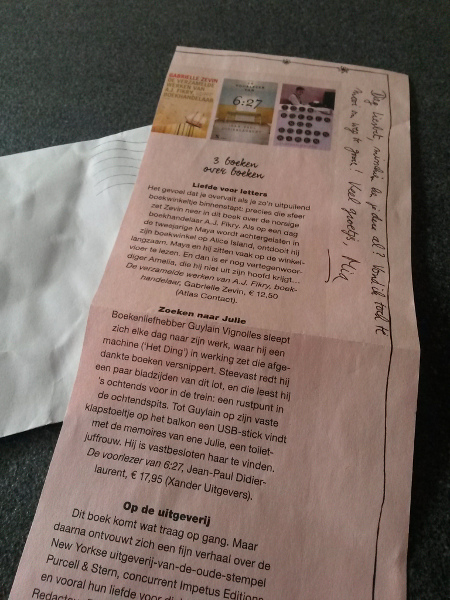 GABRIELLE ZEVIN
DE VERZAMELDE
WERKEN VAN
A.J. FIKRY,
BOEKHANDELAAR
6:27
3 boeken
over boeken
Liefde voor letters
Het gevoel dat je overvalt als je zo'n uitpuilend
boekwinkeltje binnenstapt: precies die sfeer
zet Zevin neer in dit boek over de norsige
boekhandelaar A.J. Fikry. Als op een dag
de tweejarige Maya wordt achtergelaten in
zijn boekwinkel op Alice Island, ontdooit hij
langzaam. Maya en hij zitten vaak op de winkel-
vloer te lezen. En dan is er nog vertegenwoor-
diger Amelia, die hij niet uit zijn hoofd krijgt...
De verzamelde werken van A.J. Fikry, boek-
handelaar, Gabrielle Zevin, € 12,50
(Atlas Contact).
Zoeken naar Julie
Boekenliefhebber Guylain Vignolles sleept
zich elke dag naar zijn werk, waar hij een
machine ('Het Ding') in werking zet die afge-
dankte boeken versnippert. Steevast redt hij
een paar bladzijden van dit lot, en die leest hij
's ochtends voor in de trein: een rustpunt in
de ochtendspits. Tot Guylain op zijn vaste
klapstoeltje op het balkon een USB-stick vindt
met de memoires van ene Julie, een toilet-
juffrouw. Hij is vastbesloten haar te vinden.
De voorlezer van 6.27, Jean-Paul Didier-
laurent, € 17,95 (Xander Uitgevers).
Op de uitgeverij
Dit boek komt wat traag op gang. Maar
daarna ontvouwt zich een fijn verhaal over de
New Yorkse uitgeverij-van-de-oude-stempel
Purcell & Stern, concurrent Impetus Editions
en vooral hun liefde voor
je deze al? Vond ik toch te
mooi om weg te gooien! Veel groetjes, Mia